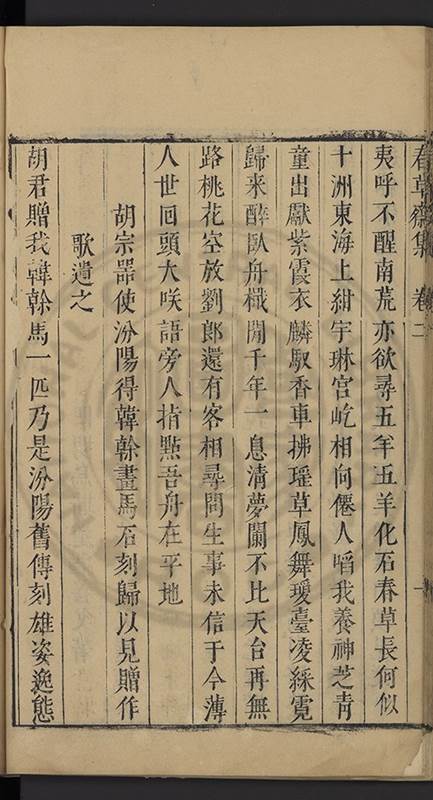 春草齋集 卷二
夷呼不醒南荒亦欲尋五年五羊化石春草長何似
十洲東海上紺宇琳宮屹相向僊人啗我養神芝青
童出獻紫霞衣麟馭香車拂瑶草鳳舞瑷臺凌綵霓
歸来醉臥舟檝閒千年一息清夢闌不比天台再無
路桃花空放劉郎還有客相尋問生事未信于今薄
人世回頭大咲語旁人指點吾舟在平地
胡宗器使汾陽得韓幹畫馬石刻歸以見贈作
歌遺之
胡君贈我韓幹馬一匹乃是汾陽舊傳刻雄姿逸態